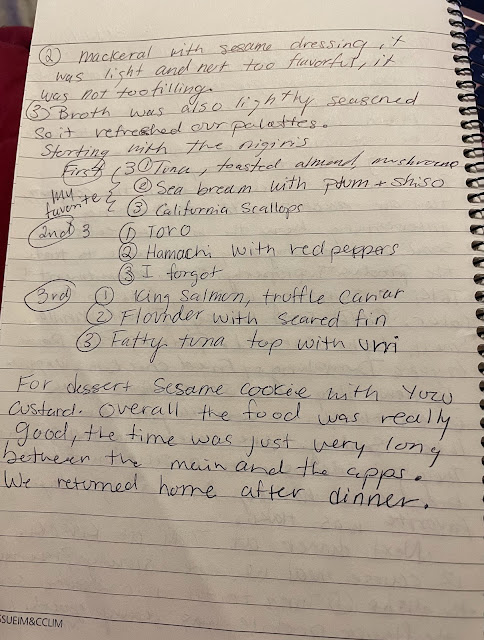 ② mackeral with sesame dressing, it
was light and not too flavorful, it
was not too filling.
③ Broth was also lightly seasoned
so it refreshed our palattes.
Starting with the nigiris
First 3 ① Tuna, toasted almond, mushrooms
my favorite ② Sea bream with plum + shiso
③ California Scallops
2nd 3 ① Toro
② Hamachi with red peppers
③ I forgot
3rd ① King Salmon, truffle caviar
② Flounder with seared fin
③ Fatty tuna top with uni
For dessert Sesame cookie with Yuzu
custard. Overall the food was really
good, the time was just very long
between the main and the apps.
We returned home after dinner.
SUEIM&CCLIM